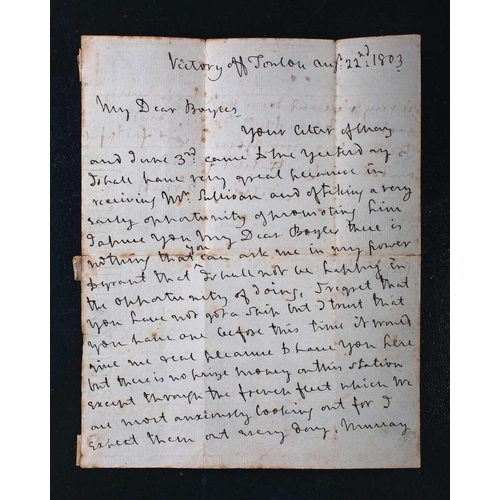 Victory off Toulon Augt. 22nd. 1803
My Dear Boyles
Your letter of May
and June 3rd. came to me yesterday
I shall have very great pleasure in
receiving Mr. Sullivan and of taking a very
early opportunity of promoting him
I assure you My Dear Boyles there is
nothing that you can ask me in my power
to grant that I shall not be happy in
the opportunity of doing, I regret that
you have not got a ship but I trust that
you have one before this time it would
give me real pleasure to have you here
but there is no prize money on this station
except through the french fleet which we
are most anxiously looking out for I
expect them out every day, Murray